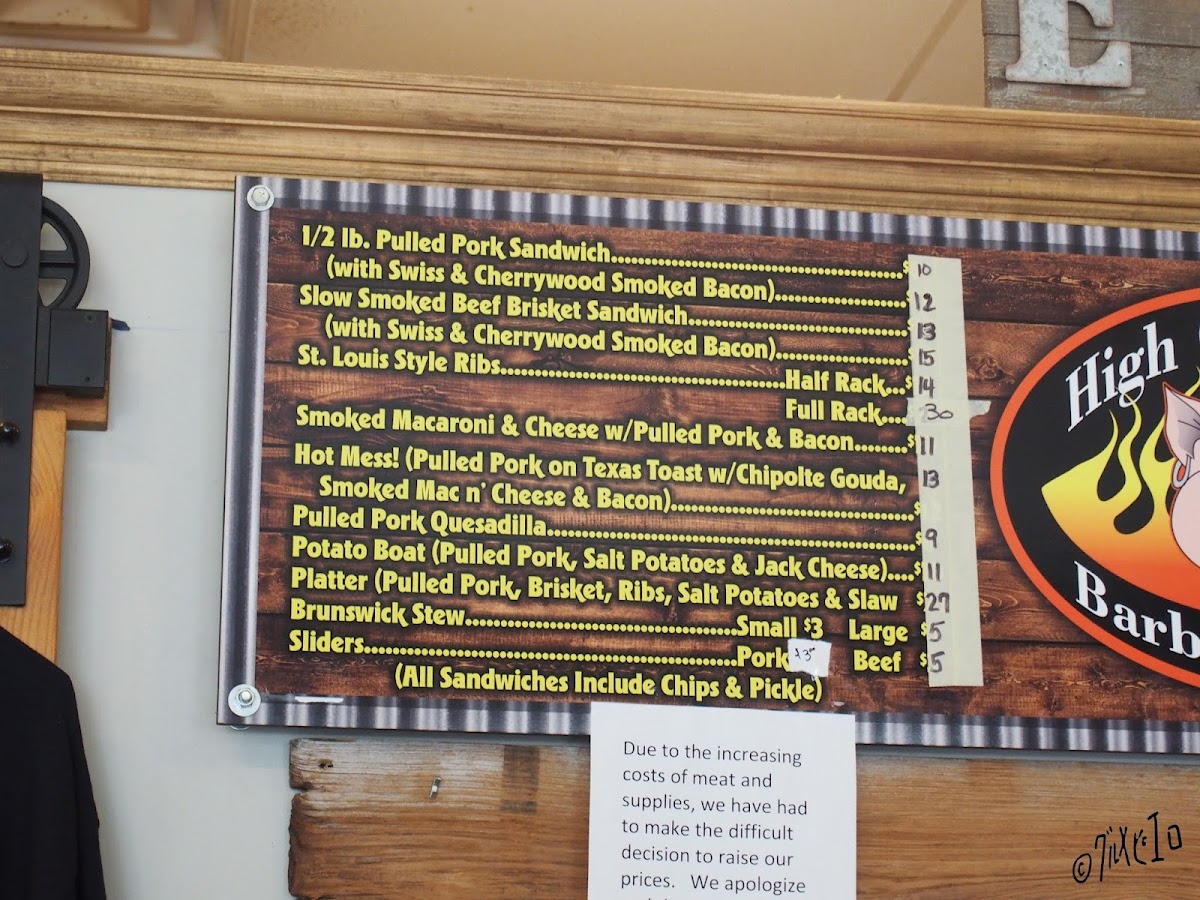 E
1/2 lb. Pulled Pork Sandwich........................................$ 10
(with Swiss & Cherrywood Smoked Bacon)..................$ 12
Slow Smoked Beef Brisket Sandwich..............................$ 13
(with Swiss & Cherrywood Smoked Bacon)..................$ 15
St. Louis Style Ribs.......................................Half Rack...$ 14
Full Rack.... 30
Smoked Macaroni & Cheese w/Pulled Pork & Bacon........$ 11
Hot Mess! (Pulled Pork on Texas Toast w/Chipolte Gouda, 13
Smoked Mac n' Cheese & Bacon).................................$
Pulled Pork Quesadilla..................................................$ 9
Potato Boat (Pulled Pork, Salt Potatoes & Jack Cheese)....$ 11
Platter (Pulled Pork, Brisket, Ribs, Salt Potatoes & Slaw $27
Brunswick Stew.....................................Small $3 Large $5
Sliders...................................................Pork $3 Beef $5
(All Sandwiches Include Chips & Pickle)
High
Barb
Due to the increasing
costs of meat and
supplies, we have had
to make the difficult
decision to raise our
prices. We apologize